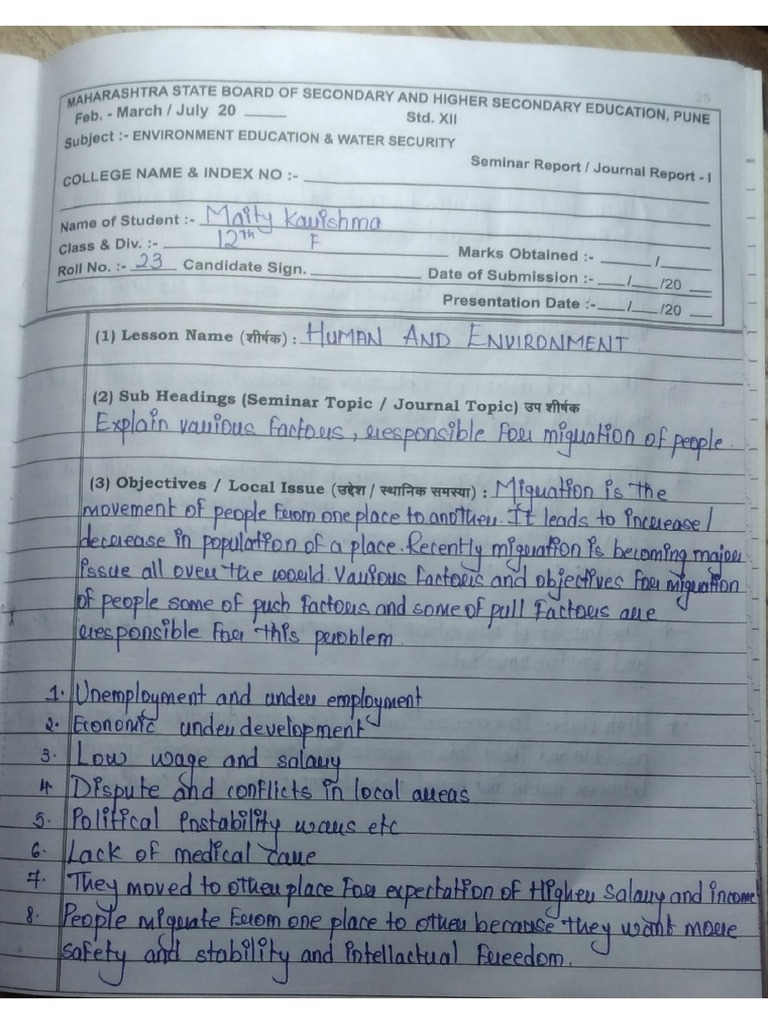 25
MAHARASHTRA STATE BOARD OF SECONDARY AND HIGHER SECONDARY EDUCATION, PUNE
Feb. - March / July 20 ____ Std. XII
Subject :- ENVIRONMENT EDUCATION & WATER SECURITY
Seminar Report / Journal Report - I
COLLEGE NAME & INDEX NO :-
Name of Student :- Maity Karishma
Class & Div. :- 12th F Marks Obtained :- ___/___
Roll No. :- 23 Candidate Sign. ____ Date of Submission :- __/__/20 __
Presentation Date :- __/__/20 __
(1) Lesson Name (शीर्षक) : HUMAN AND ENVIRONMENT
(2) Sub Headings (Seminar Topic / Journal Topic) उप शीर्षक
Explain various factors, responsible for migration of people.
(3) Objectives / Local Issue (उद्देश / स्थानिक समस्या) : Migration is the
movement of people from one place to another. It leads to increase /
decrease in population of a place. Recently migration is becoming major
issue all over the world. Various factors and objectives for migration
of people some of push factors and some of pull factors are
responsible for this problem.
1. Unemployment and under employment
2. Economic under development
3. Low wage and salary
4. Dispute and conflicts in local areas
5. Political instability wars etc
6. Lack of medical care
7. They moved to other place for expectation of Higher salary and income
8. People migrate from one place to other because they want more
safety and stability and intellactual freedom.